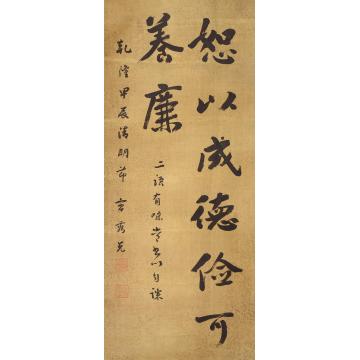 恕以成德儉可
養廉
二語有味常書以自課
乾隆甲辰清明節